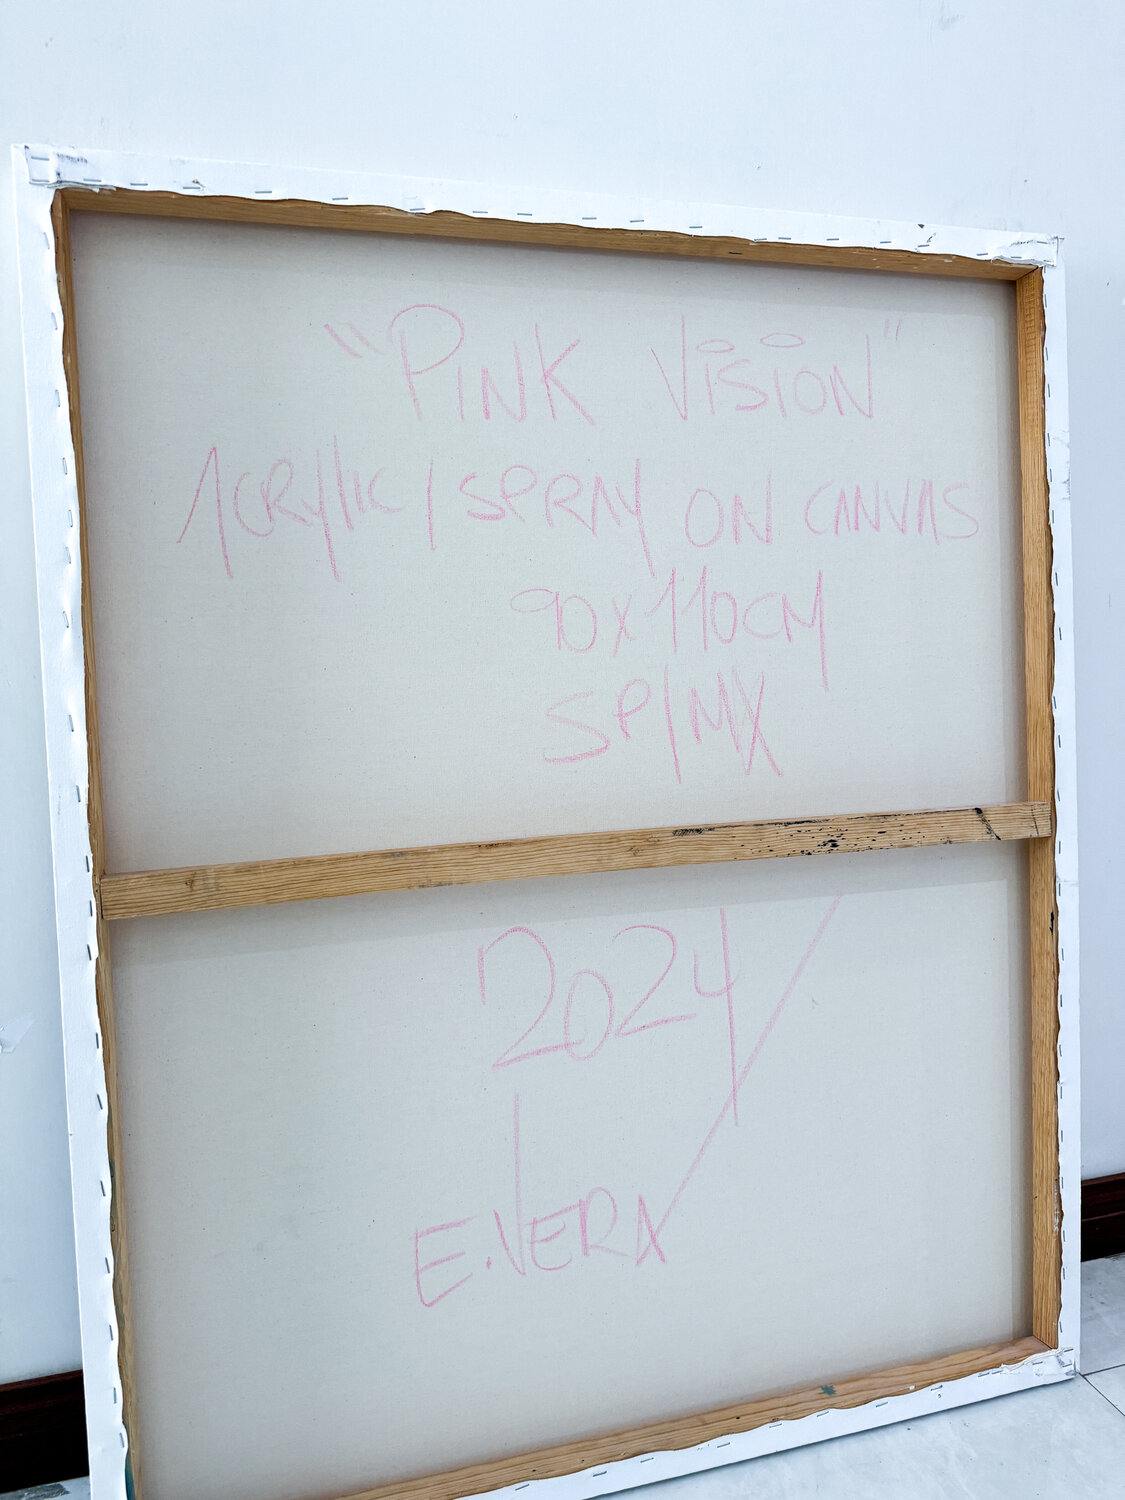 "PINK VISION"
ACRYLIC / SPRAY ON CANVAS
90X110CM
SP/MX
2024
E.VERA